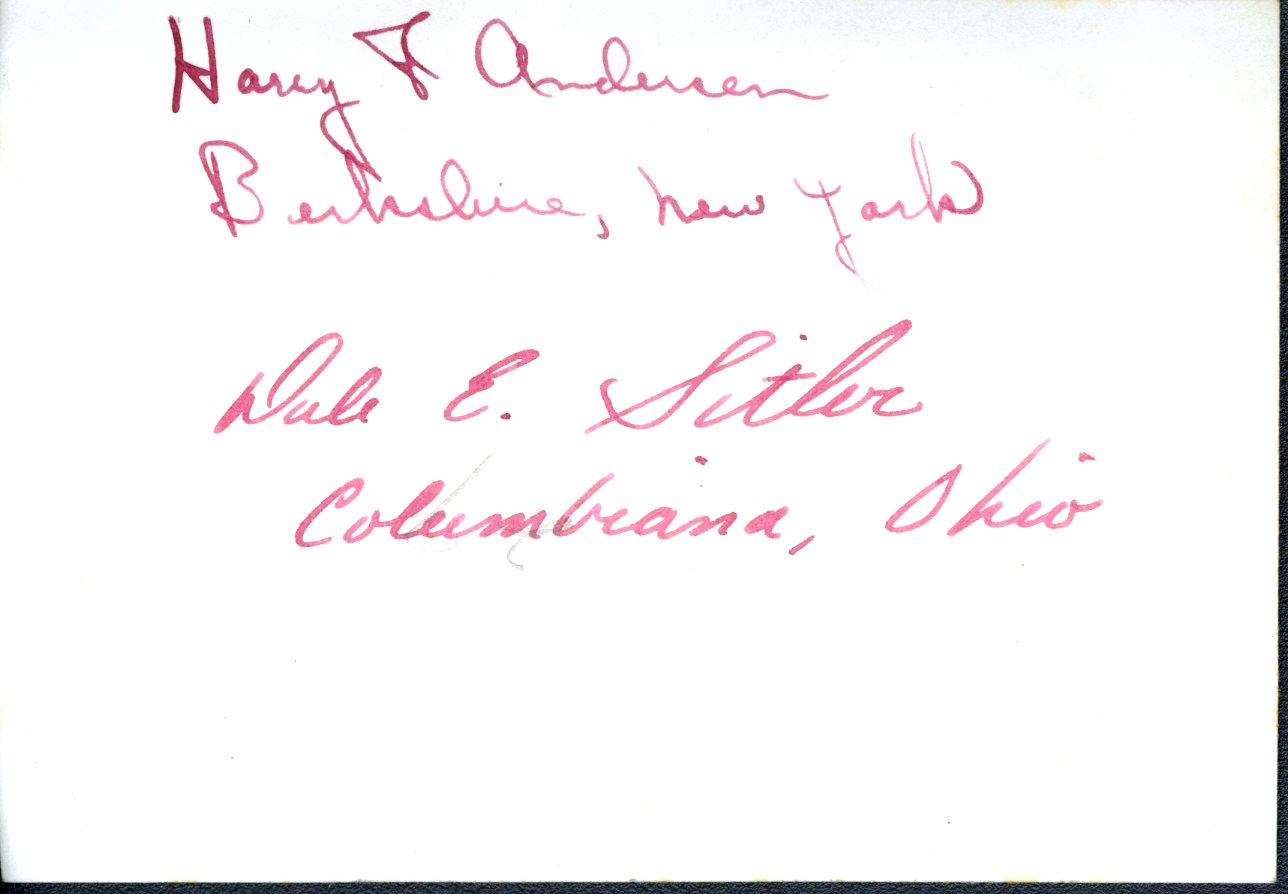 Harry F Andersen
Berkshire, New York
Dale E. Sitler
Columbiana, Ohio